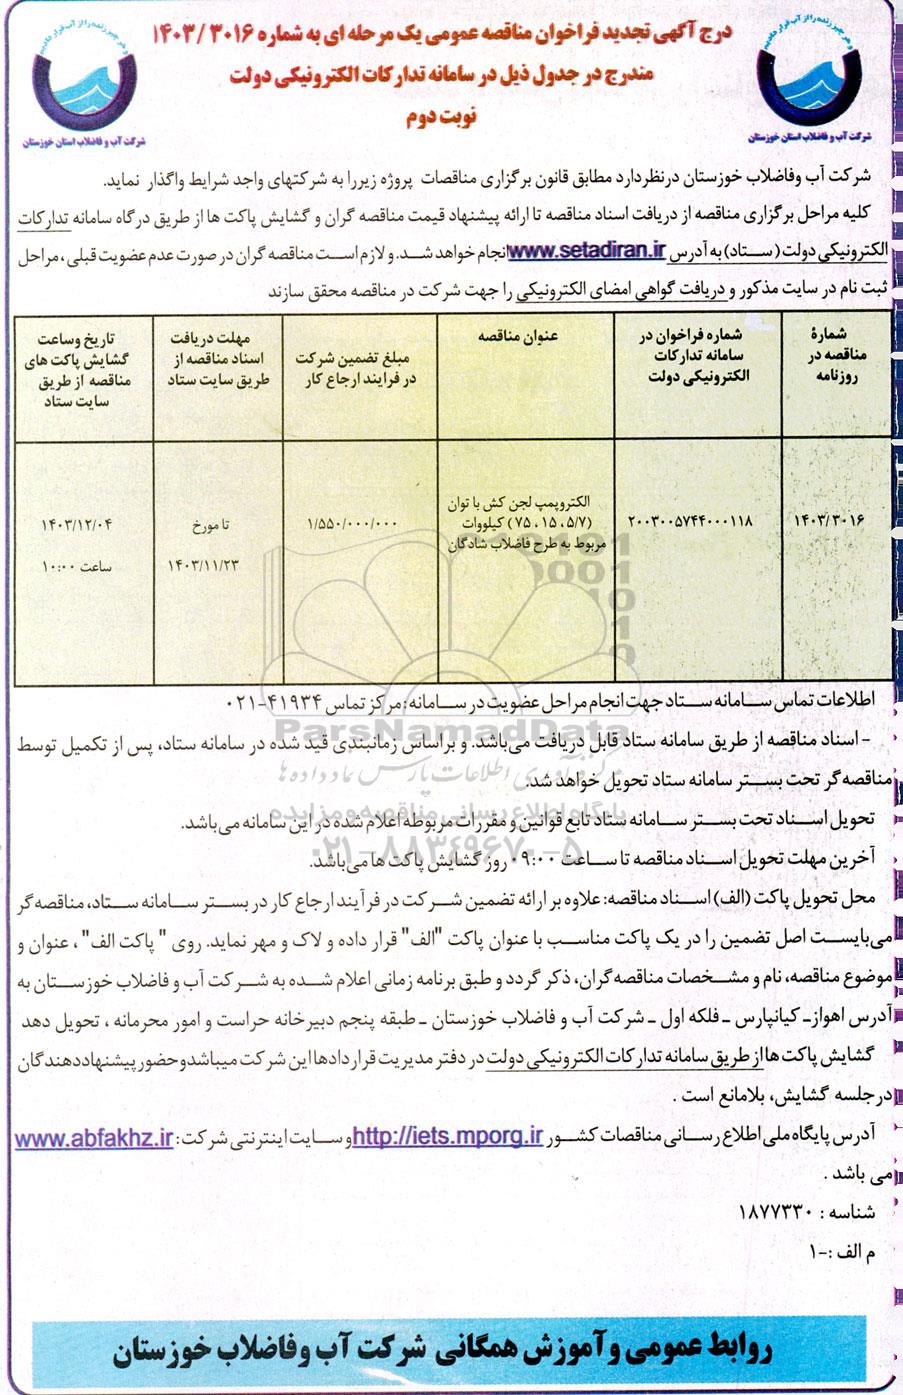 درج آگهی تجدید فراخوان مناقصه عمومی یک مرحله ای به شماره ۳۰۱۶ /۱۴۰۳
مندرج در جدول ذیل در سامانه تدارکات الکترونیکی دولت
نوبت دوم
شرکت آب و فاضلاب استان خوزستان
شرکت آب و فاضلاب استان خوزستان
شرکت آب وفاضلاب خوزستان درنظردارد مطابق قانون برگزاری مناقصات پروژه زیررا به شرکتهای واجد شرایط واگذار نماید.
کلیه مراحل برگزاری مناقصه از دریافت اسناد مناقصه تا ارائه پیشنهاد قیمت مناقصه گران و گشایش پاکت ها از طریق درگاه سامانه تدارکات
الکترونیکی دولت ( ستاد) به آدرس www.setadiran.ir انجام خواهد شد. و لازم است مناقصه گران در صورت عدم عضویت قبلی ، مراحل
ثبت نام در سایت مذکور و دریافت گواهی امضای الکترونیکی را جهت شرکت در مناقصه محقق سازند
شمارهٔ مناقصه در روزنامه
شماره فراخوان در سامانه تدارکات الکترونیکی دولت
عنوان مناقصه
مبلغ تضمین شرکت در فرایند ارجاع کار
مهلت دریافت اسناد مناقصه از طریق سایت ستاد
تاریخ وساعت گشایش پاکت های مناقصه از طریق سایت ستاد
۱۴۰۳/۳۰۱۶
۲۰۰۳۰۰۵۷۴۴۰۰۰۱۱۸
الکتروپمپ لجن کش با توان
(۵/۷ ، ۱۵ ، ۷۵ ) کیلووات
مربوط به طرح فاضلاب شادگان
۱/۵۵۰/۰۰۰/۰۰۰
تا مورخ
۱۴۰۳/۱۱/۲۳
۱۴۰۳/۱۲/۰۴
ساعت ۱۰:۰۰
اطلاعات تماس سامانه ستاد جهت انجام مراحل عضویت در سامانه: مرکز تماس ۴۱۹۳۴-۰۲۱
ParsNamadData
- اسناد مناقصه از طریق سامانه ستاد قابل دریافت می‌باشد. و براساس زمانبندی قید شده در سامانه ستاد، پس از تکمیل توسط
مناقصه گر تحت بستر سامانه ستاد تحویل خواهد شد.
پایگاه اطلاع رسانی مناقصه و مزایده
تحویل اسناد تحت بستر سامانه ستاد تابع قوانین و مقررات مربوطه اعلام شده در این سامانه می‌باشد.
۰۲۱-۸۸۳۴۹۶۷۰-۵
آخرین مهلت تحویل اسناد مناقصه تا ساعت ۰۹:۰۰ روز گشایش پاکت ها می‌باشد.
محل تحویل پاکت (الف) اسناد مناقصه: علاوه بر ارائه تضمین شرکت در فرآیند ارجاع کار در بستر سامانه ستاد، مناقصه گر
می‌بایست اصل تضمین را در یک پاکت مناسب با عنوان پاکت "الف" قرار داده و لاک و مهر نماید. روی " پاکت الف" ، عنوان و
موضوع مناقصه، نام و مشخصات مناقصه گران، ذکر گردد و طبق برنامه زمانی اعلام شده به شرکت آب و فاضلاب خوزستان به
آدرس اهواز- کیانپارس - فلکه اول - شرکت آب و فاضلاب خوزستان - طبقه پنجم دبیرخانه حراست و امور محرمانه ، تحویل دهد
گشایش پاکت ها از طریق سامانه تدارکات الکترونیکی دولت در دفتر مدیریت قراردادها این شرکت میباشد وحضور پیشنهاددهندگان
درجلسه گشایش، بلامانع است .
آدرس پایگاه ملی اطلاع رسانی مناقصات کشور http://iets.mporg.ir و سایت اینترنتی شرکت : www.abfakhz.ir
می باشد .
شناسه : ۱۸۷۷۳۳۰
م الف :-۱
روابط عمومی و آموزش همگانی شرکت آب و فاضلاب خوزستان